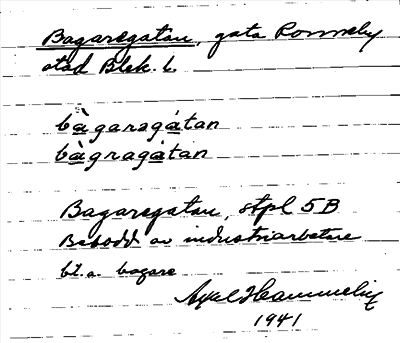 Bagaregatan, gata Ronneby
stad Blek. l.
bàgaragátan
bàgragátan
Bagaregatan, stpl 5B
Bebodd av industriarbetare
bl. a. bagare
Axel
1941